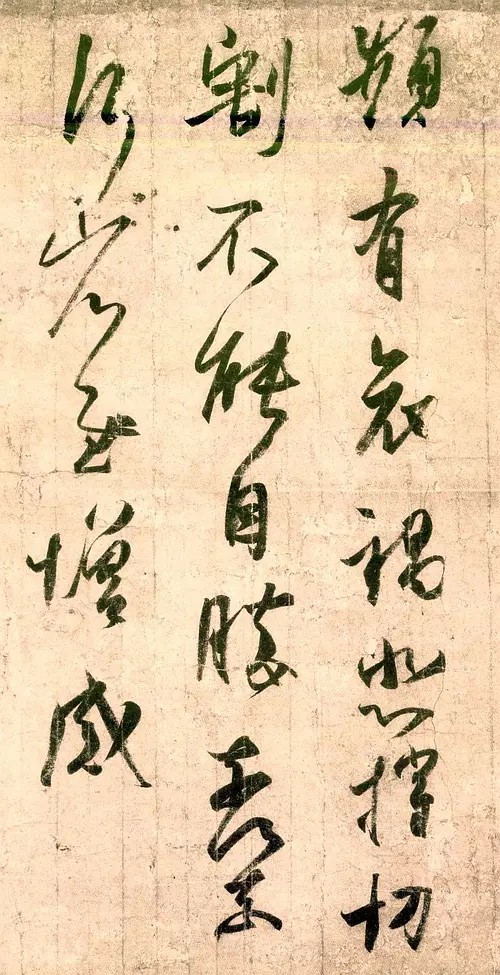 頻有哀禍悲摧切
割不能自勝奈
何奈何省慰增感